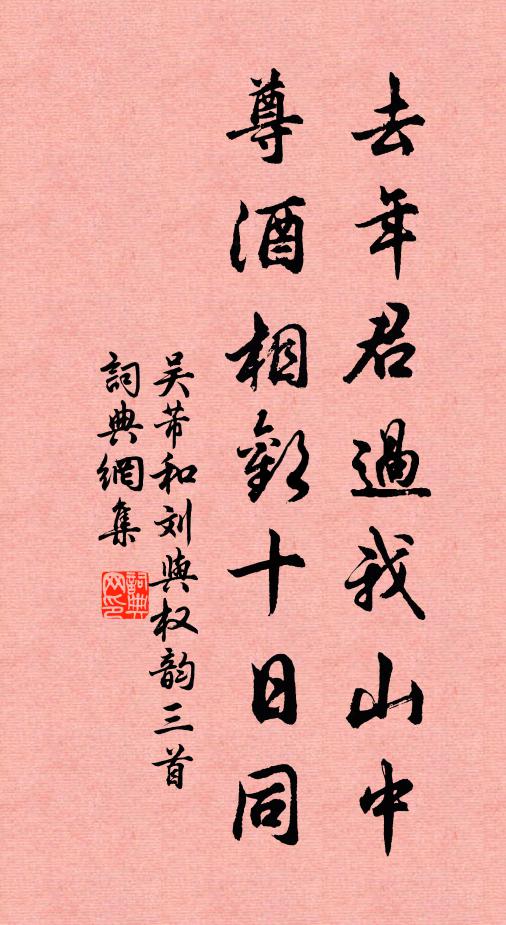 去年君過我山中
尊酒相歡十日同
吴芾和刘與权韵三首
詞典網集
詞典网印